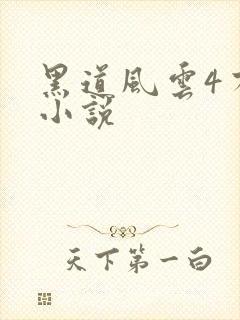 黑道風雲4
小說
天下第一白